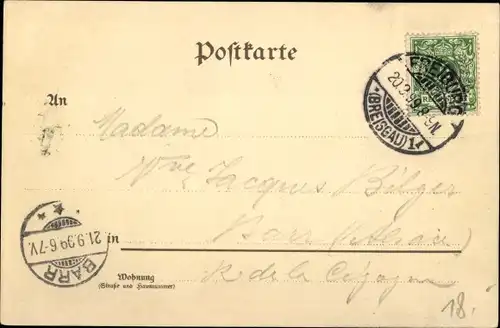 Postkarte
FREIBURG
20.9.99.8-9N.
* (BREISGAU) 1 *
An
Madame
Vve Jacques Bilger
21.9.99 6-7V.
BARR
in Barr (Alsace)
Wohnung
(Straße und Hausnummer)
R. de la Cigogne
18.